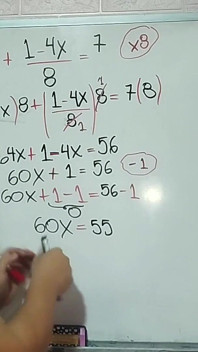 + 1-4x/8 = 7 ×8
x)8+(1-4x/8)8=7(8)
1 1
64x+1-4x=56
60x+1=56 -1
60x+1-1=56-1
0
60x=55